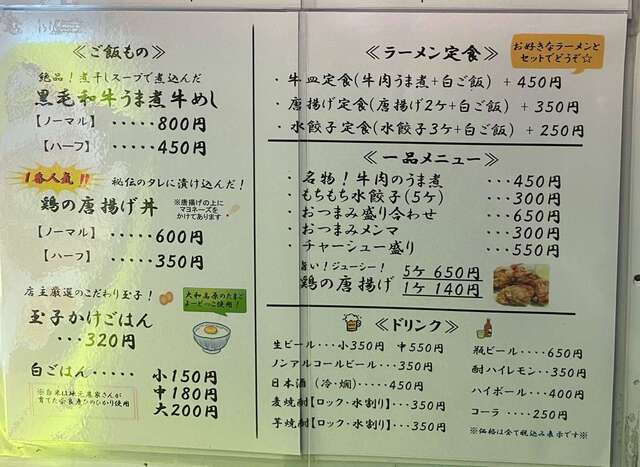 ≪ご飯もの≫
絶品！煮干しスープで煮込んだ
黒毛和牛うま煮牛めし
【ノーマル】・・・・・800円
【ハーフ】・・・・・450円
1番人気!!
秘伝のタレに漬け込んだ！
鶏の唐揚げ丼
※唐揚げの上に
マヨネーズを
かけてあります
【ノーマル】・・・・・600円
【ハーフ】・・・・・350円
店主厳選のこだわり玉子！
大和高原のたまご
使用！
玉子かけごはん
・・・320円
白ごはん・・・・・小150円
中180円
大200円
※白米は地元農家さんが
ひのひかり使用
≪ラーメン定食≫
お好きなラーメンと
セットでどうぞ☆
・牛皿定食(牛肉うま煮+白ご飯) + 450円
・唐揚げ定食(唐揚げ2ケ+白ご飯) + 350円
・水餃子定食(水餃子3ケ+白ご飯) + 250円
≪一品メニュー≫
・名物！牛肉のうま煮・・・・・450円
・もちもち水餃子(5ケ)・・・・・300円
・おつまみ盛り合わせ・・・・・650円
・おつまみメンマ・・・・・300円
・チャーシュー盛り・・・・・550円
旨い！ジューシー！
鶏の唐揚げ
5ケ 650円
1ケ 140円
≪ドリンク≫
生ビール・・・小350円 中550円
ノンアルコールビール・・・・350円
日本酒（冷・燗）・・・・450円
麦焼酎【ロック・水割り】・・・350円
芋焼酎【ロック・水割り】・・・350円
瓶ビール・・・・650円
酎ハイレモン・・・350円
ハイボール・・・・400円
コーラ・・・・250円
※価格は全て税込み表示です※